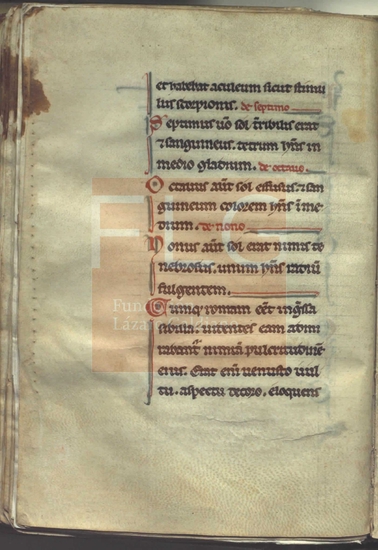 et habebat aculeum sicut stimu
lus scorpionis. de septimo
Septimus u͞o sol t͛ribilis erat
⁊ sanguineus. tetrum h͞ns in
medio gladium. de octauo.
Octauus aut͞ sol effusus. ⁊ san
guineum colorem h͞ns i͞ me
dium. de nono
Nonus aut͞ sol erat nimis te
nebrosus. unum h͞ns radiu͞
fulgentem.
Cumq; romam ee͞t ing͛ssa
sibilla. uidentes eam admi
rabant᷑ nimia͞ pulcritudine͞
eius. Erat eni͞ uenusto uul
tu. aspectu decoro. eloquens
FLG
Lázaro